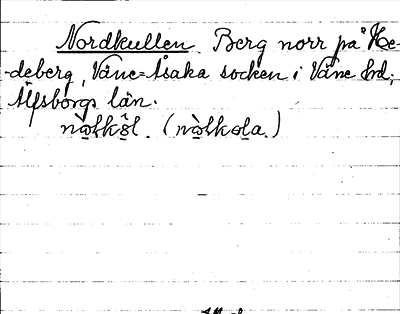 Nordkullen. Berg norr på He-
-deberg, Väne-Åsaka socken i Väne hd,
Älfsborgs län.